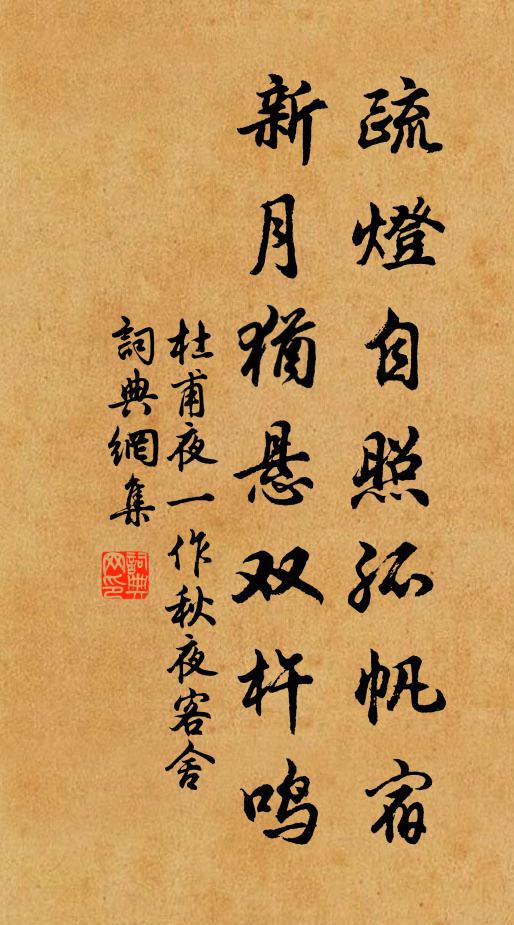 疏燈自照孤帆宿
新月猶悬双杵鸣
杜甫夜一作秋夜客舍
詞典網集
詞典网印